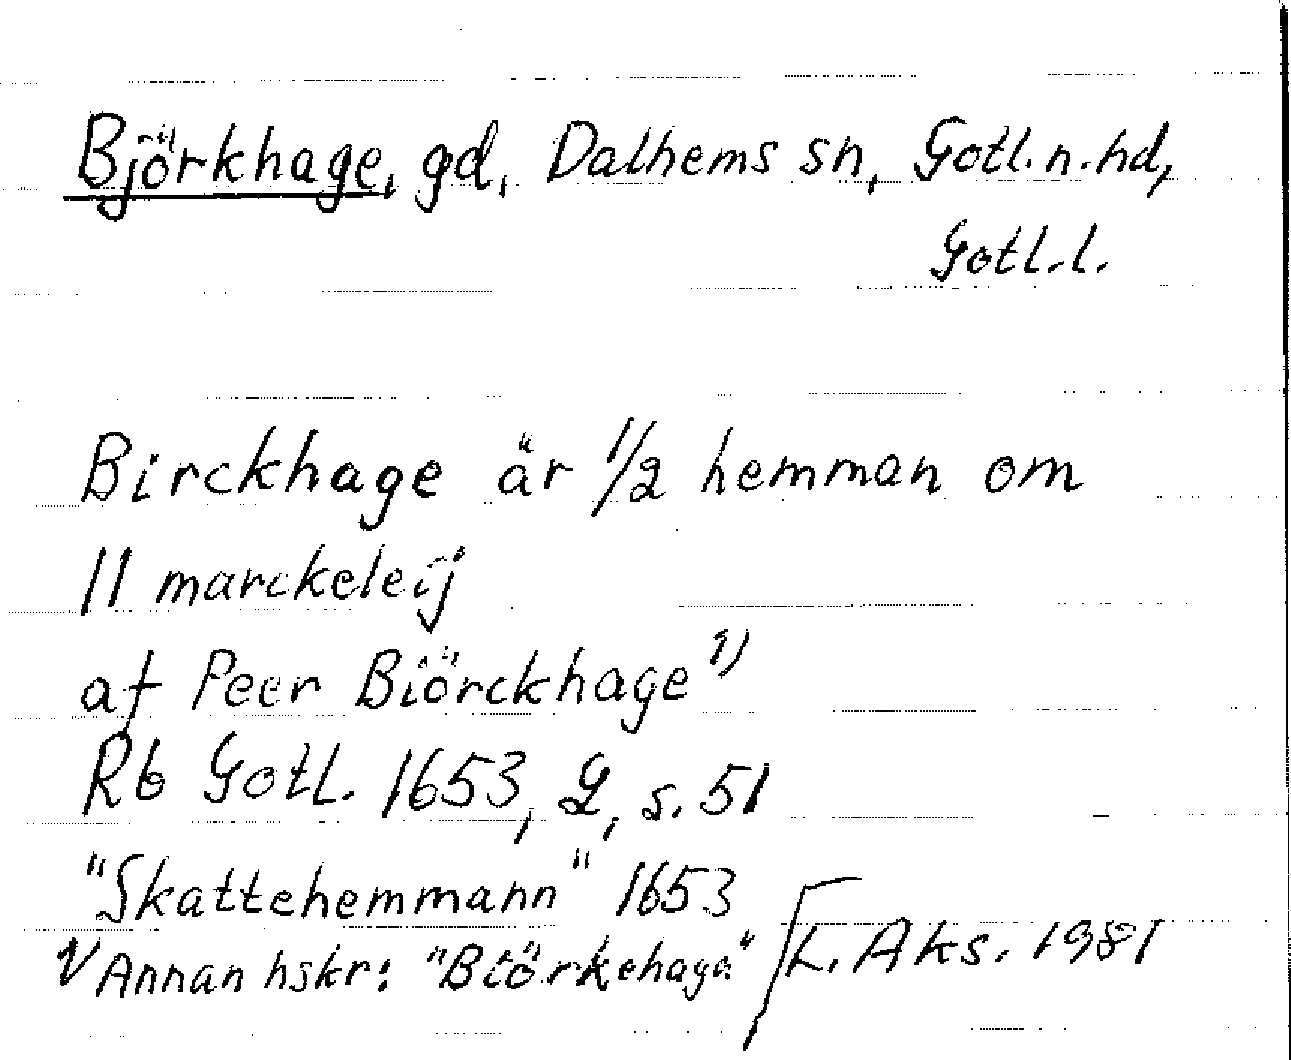 Björkhage, gd, Dalhems sn, Gotl. n. hd,
Gotl. l.
Birckhage är 1/2 hemman om
11 marckeleij
af Peer Biörckhage 1)
Rb Gotl. 1653, 2, s. 51
"Skattehemmann" 1653
1) Annan hskr: "Biörkehage" L. Aks. 1981